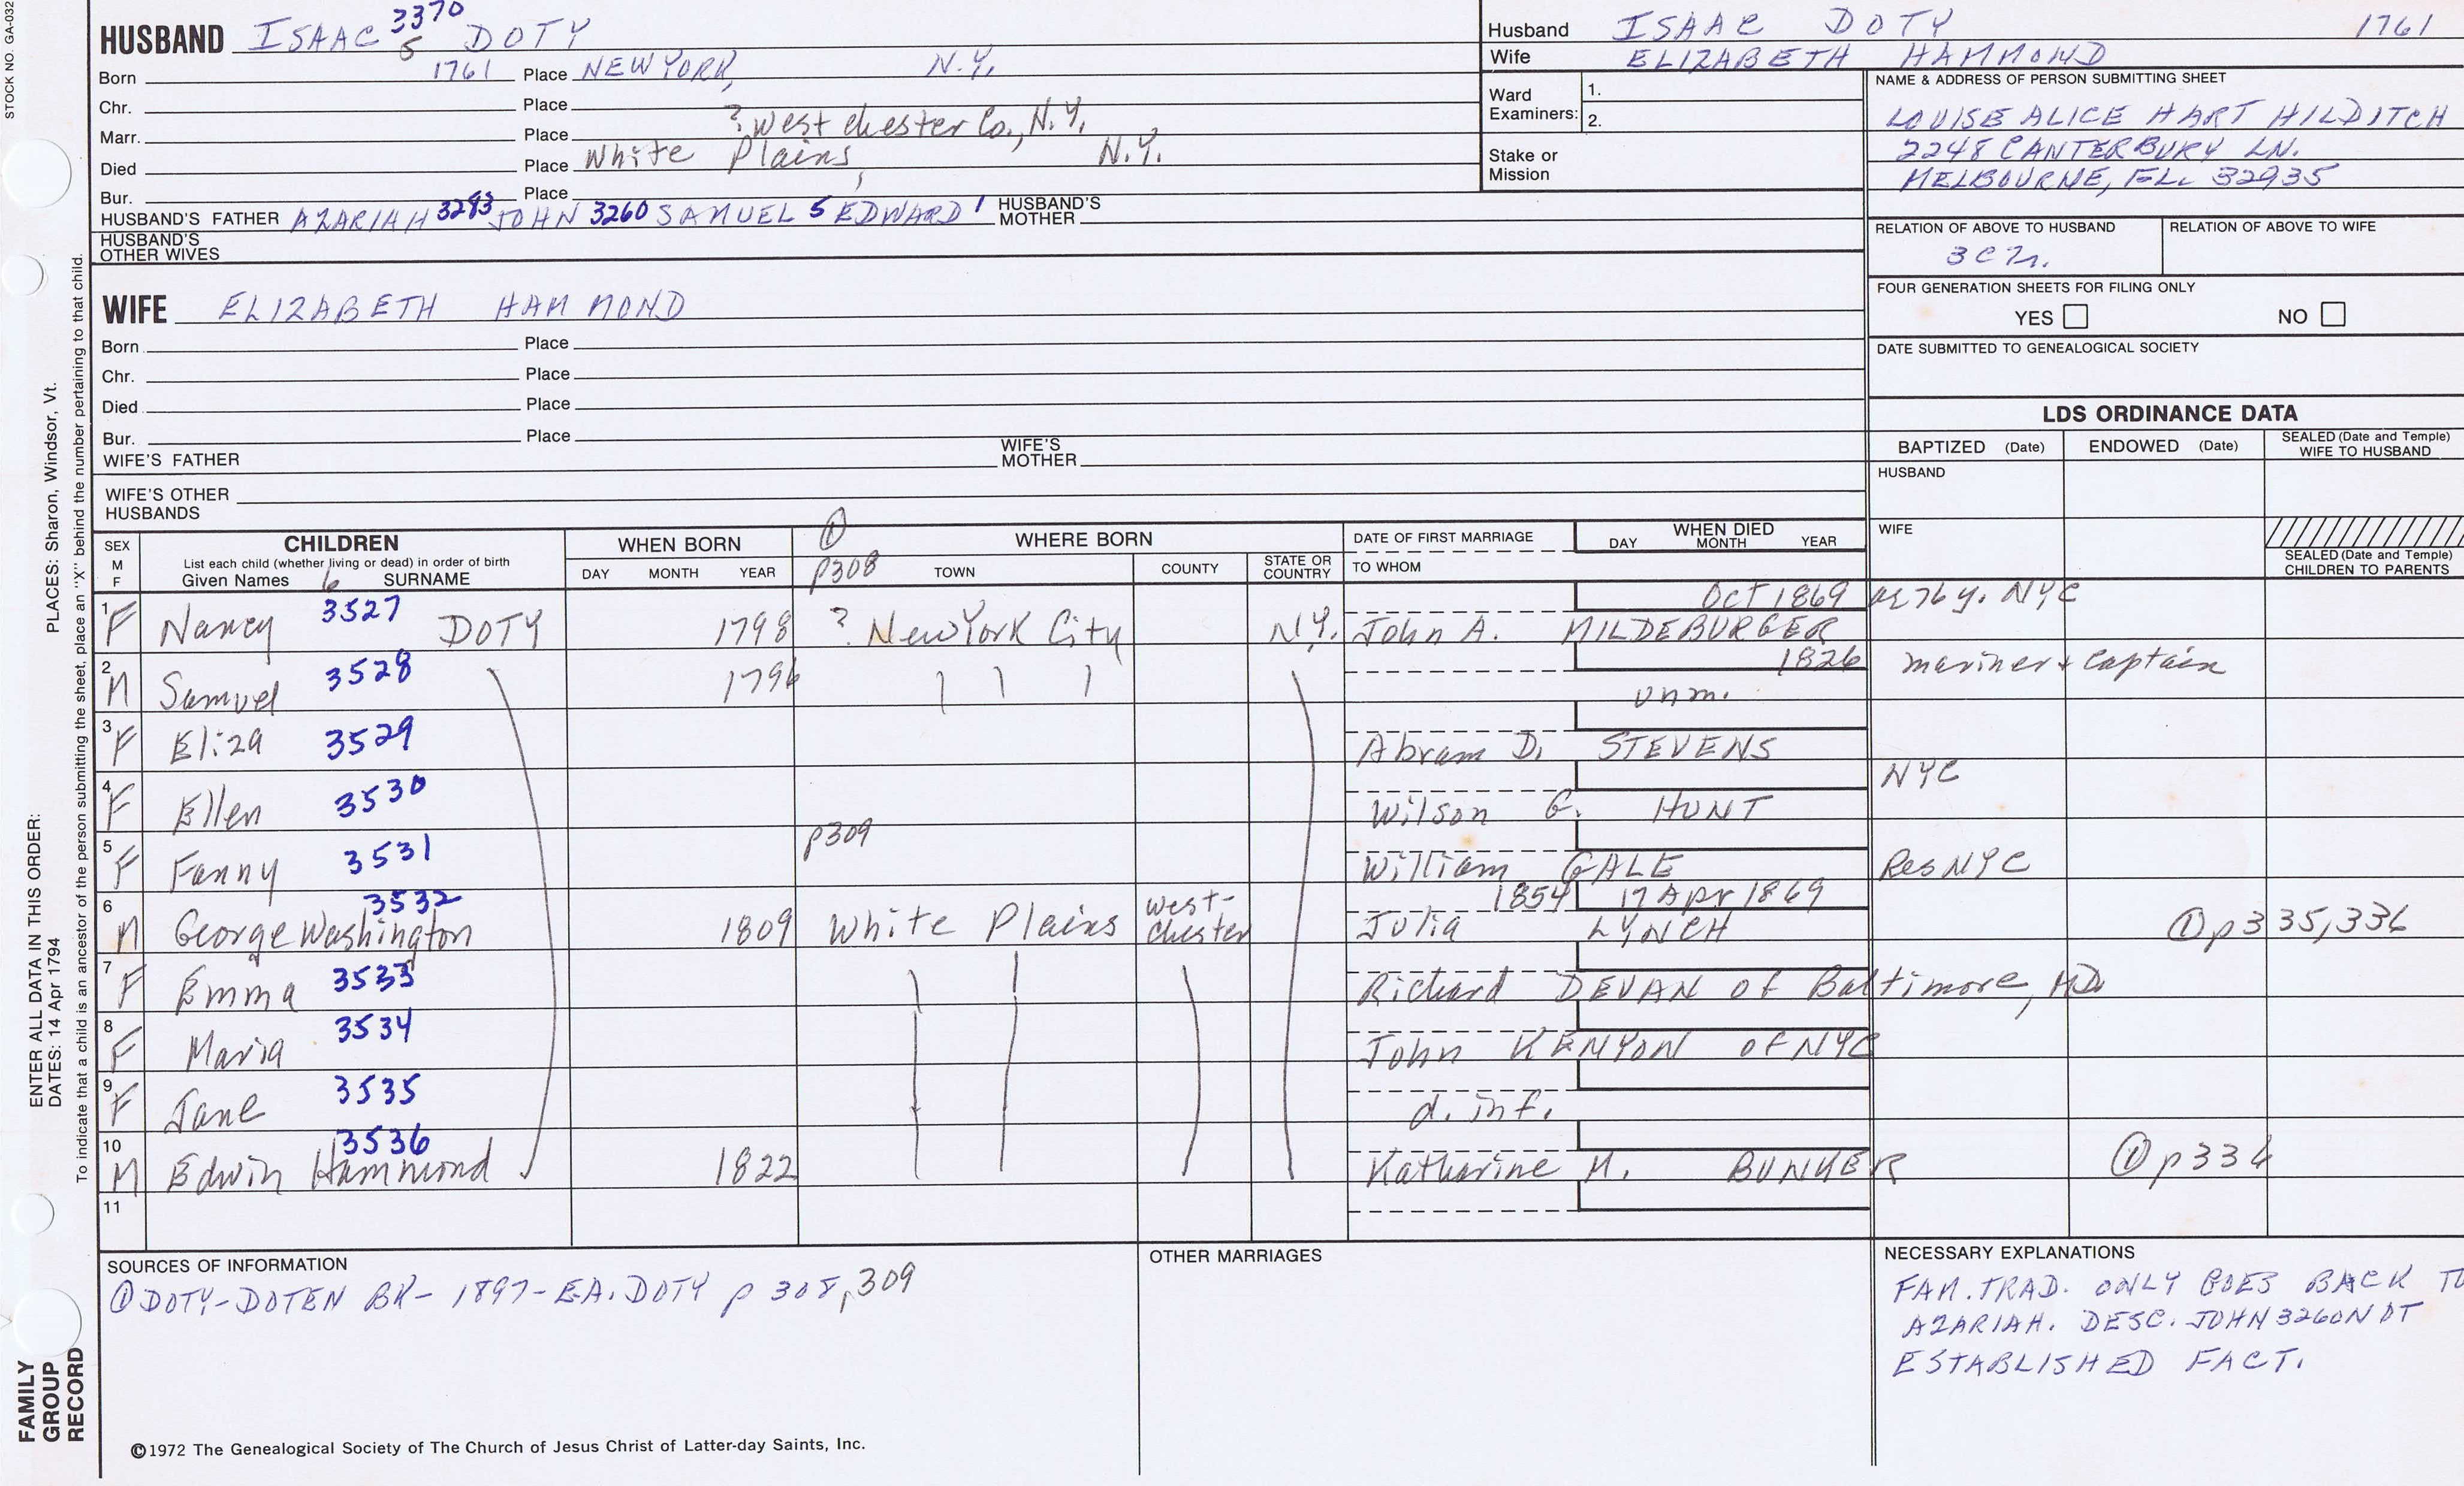 STOCK NO. GA-032
HUSBAND ISAAC 3370 5 DOTY
Born 1761 Place NEW YORK, N.Y.
Chr. Place
Marr. Place ? West chester Co., N.Y.
Died Place White Plains, N.Y.
Bur. Place
HUSBAND'S FATHER AZARIAH 3293 JOHN 3260 SAMUEL 5 EDWARD 1 HUSBAND'S MOTHER
HUSBAND'S OTHER WIVES
WIFE ELIZABETH HAMMOND
Born Place
Chr. Place
Died Place
Bur. Place
WIFE'S FATHER WIFE'S MOTHER
WIFE'S OTHER HUSBANDS
Husband ISAAC DOTY 1761
Wife ELIZABETH HAMMOND
Ward Examiners: 1.
2.
Stake or Mission
NAME & ADDRESS OF PERSON SUBMITTING SHEET
LOUISE ALICE HART HILDITCH
2248 CANTERBURY LN.
MELBOURNE, FL. 32935
RELATION OF ABOVE TO HUSBAND RELATION OF ABOVE TO WIFE
FOUR GENERATION SHEETS FOR FILING ONLY
YES NO
DATE SUBMITTED TO GENEALOGICAL SOCIETY
LDS ORDINANCE DATA
BAPTIZED (Date) ENDOWED (Date) SEALED (Date and Temple) WIFE TO HUSBAND
HUSBAND
WIFE
SEALED (Date and Temple) CHILDREN TO PARENTS
SEX M F
CHILDREN
List each child (whether living or dead) in order of birth
Given Names 6 SURNAME
WHEN BORN
DAY MONTH YEAR
① p308
WHERE BORN
TOWN COUNTY STATE OR COUNTRY
DATE OF FIRST MARRIAGE
TO WHOM
WHEN DIED
DAY MONTH YEAR
Oct 1869 ae 76 y. NYC
1 F Nancy 3527 DOTY 1798 ? New York City N.Y. John A. MILDEBURGER
1826 mariner + captain
2 M Samuel 3528 1796 unm.
3 F Eliza 3529 Abram D. STEVENS
NYC
4 F Ellen 3530 Wilson G. HUNT
p309
5 F Fanny 3531 William GALE Res NYC
1854 17 Apr 1869
6 M George Washington 3532 1809 White Plains West-chester Julia LYNCH ① p335,336
7 F Emma 3533 Richard DEVAN of Baltimore, MD
8 F Maria 3534 John KENYON of NYC
9 F Jane 3535 d. inf.
10 M Edwin Hammond 3536 1822 Katharine M. BUNKER ① p336
11
SOURCES OF INFORMATION
① DOTY-DOTEN BK- 1897- E.A. DOTY p 308, 309
OTHER MARRIAGES
NECESSARY EXPLANATIONS
FAM. TRAD. ONLY GOES BACK TO
AZARIAH. DESC. JOHN 3260 NOT
ESTABLISHED FACT.
©1972 The Genealogical Society of The Church of Jesus Christ of Latter-day Saints, Inc.
FAMILY GROUP RECORD
ENTER ALL DATA IN THIS ORDER:
DATES: 14 Apr 1794
PLACES: Sharon, Windsor, Vt.
To indicate that a child is an ancestor of the person submitting the sheet, place an "X" behind the number pertaining to that child.